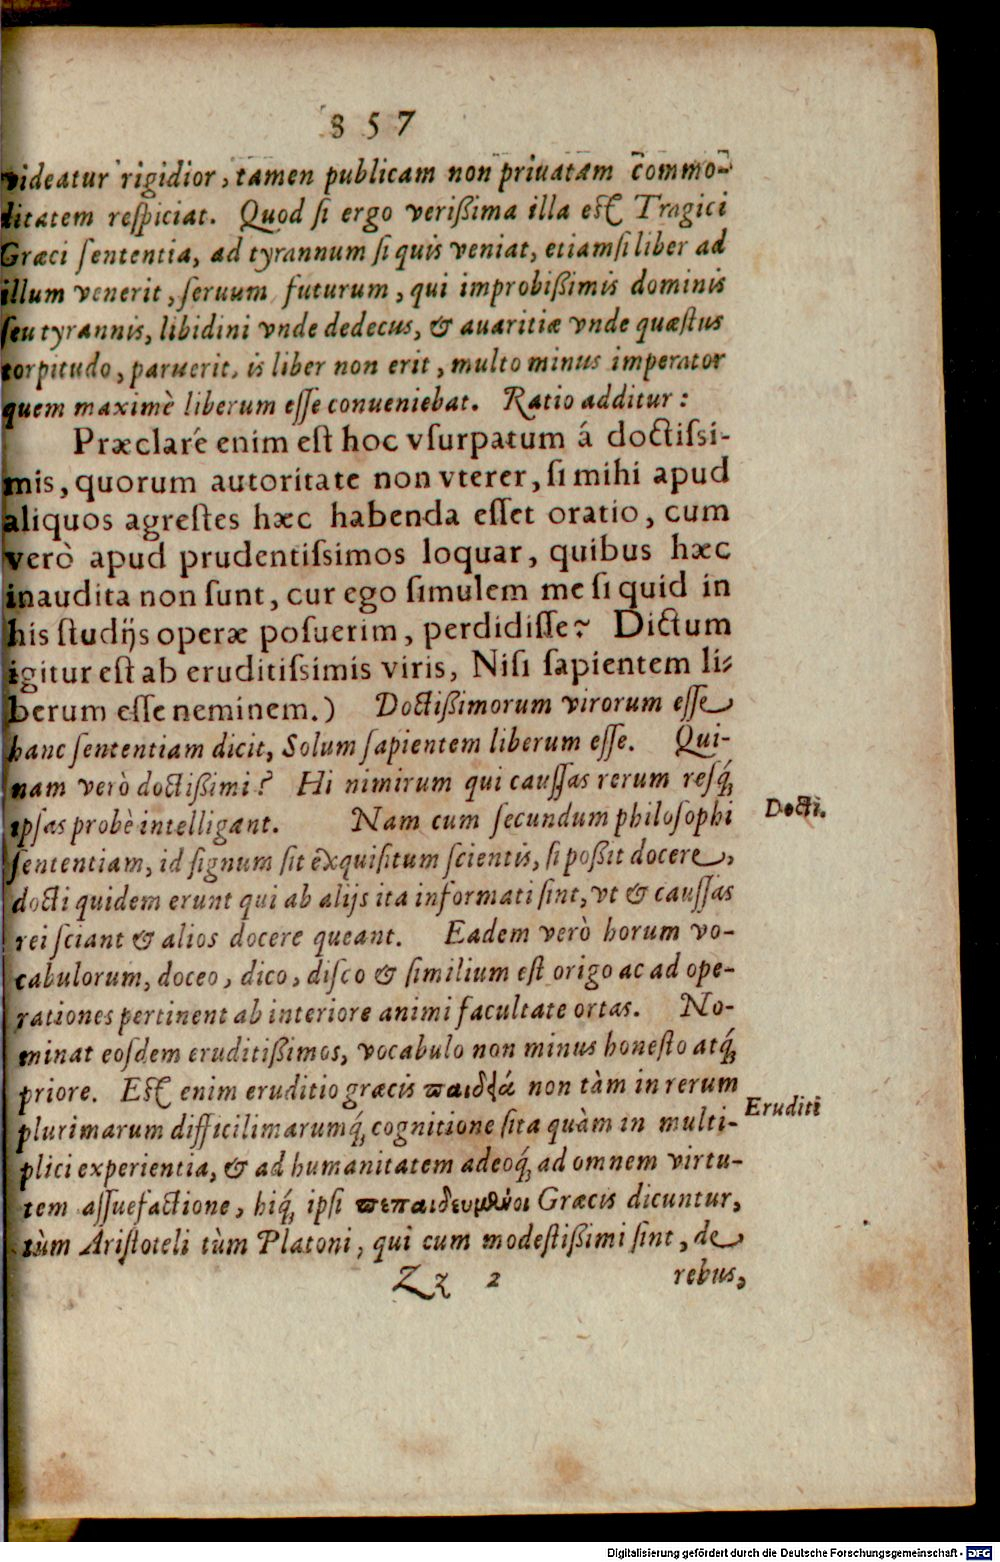 357
videatur rigidior, tamen publicam non priuatam commo-
ditatem respiciat. Quod si ergo verißima illa est Tragici
Græci sententia, ad tyrannum si quis veniat, etiamsi liber ad
illum venerit, seruum futurum, qui improbißimis dominis
seu tyrannis, libidini vnde dedecus, & auaritiæ vnde quæstus
torpitudo, paruerit, is liber non erit, multo minus imperator
quem maximè liberum esse conueniebat. Ratio additur:
Præclaré enim est hoc vsurpatum á doctissi-
mis, quorum autoritate non vterer, si mihi apud
aliquos agrestes hæc habenda esset oratio, cum
verò apud prudentissimos loquar, quibus hæc
inaudita non sunt, cur ego simulem me si quid in
his studijs operæ posuerim, perdidisse? Dictum
igitur est ab eruditissimis viris, Nisi sapientem li-
berum esse neminem.) Doctißimorum virorum esse
hanc sententiam dicit, Solum sapientem liberum esse. Qui-
nam verò doctißimi? Hi nimirum qui caussas rerum resq́;
ipsas probè intelligant. Nam cum secundum philosophi
Docti.
sententiam, id signum sit exquisitum scientis, si poßit docere,
docti quidem erunt qui ab alijs ita informati sint, vt & caussas
rei sciant & alios docere queant. Eadem verò horum vo-
cabulorum, doceo, dico, disco & similium est origo ac ad ope-
rationes pertinent ab interiore animi facultate ortas. No-
minat eosdem eruditißimos, vocabulo non minus honesto atq́;
priore. Est enim eruditio græcis παιδεία non tàm in rerum
Eruditi
plurimarum difficilimarumq́; cognitione sita quàm in multi-
plici experientia, & ad humanitatem adeoq́; ad omnem virtu-
tem assuefactione, hiq́; ipsi πεπαιδευμένοι Græcis dicuntur,
tùm Aristoteli tùm Platoni, qui cum modestißimi sint, de
Zz 2 rebus,
Digitalisierung gefördert durch die Deutsche Forschungsgemeinschaft - DFG